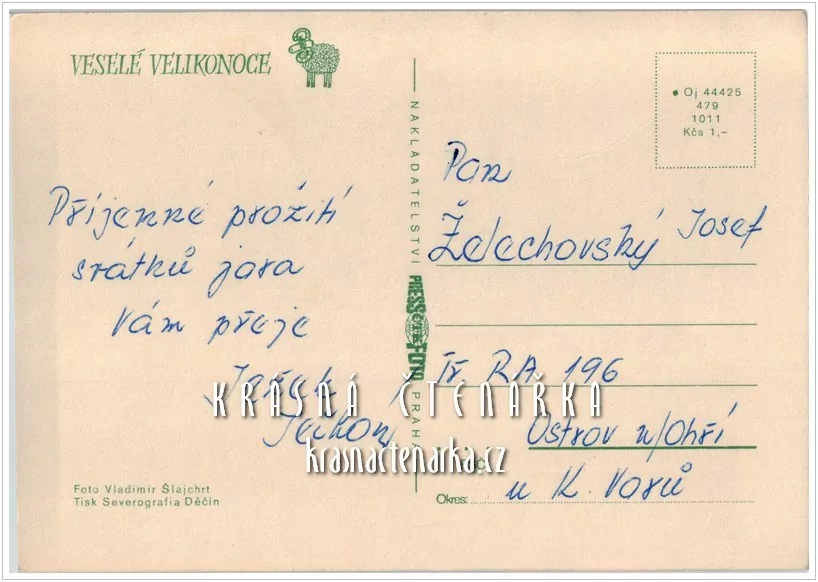 VESELÉ VELIKONOCE
Příjemné prožití
svátků jara
Vám přeje
Foto Vladimír Šlajchrt
Tisk Severografia Děčín
NAKLADATELSTVÍ
PRESSFOTO
PRAHA
Oj 44425
479
1011
Kčs 1,-
Pan
Želechovský Josef
Tř RA 196
Ostrov n/Ohří
u K. Varů
Okres:
KRÁSNÁ ČTENÁŘKA
krasnactenarka.cz